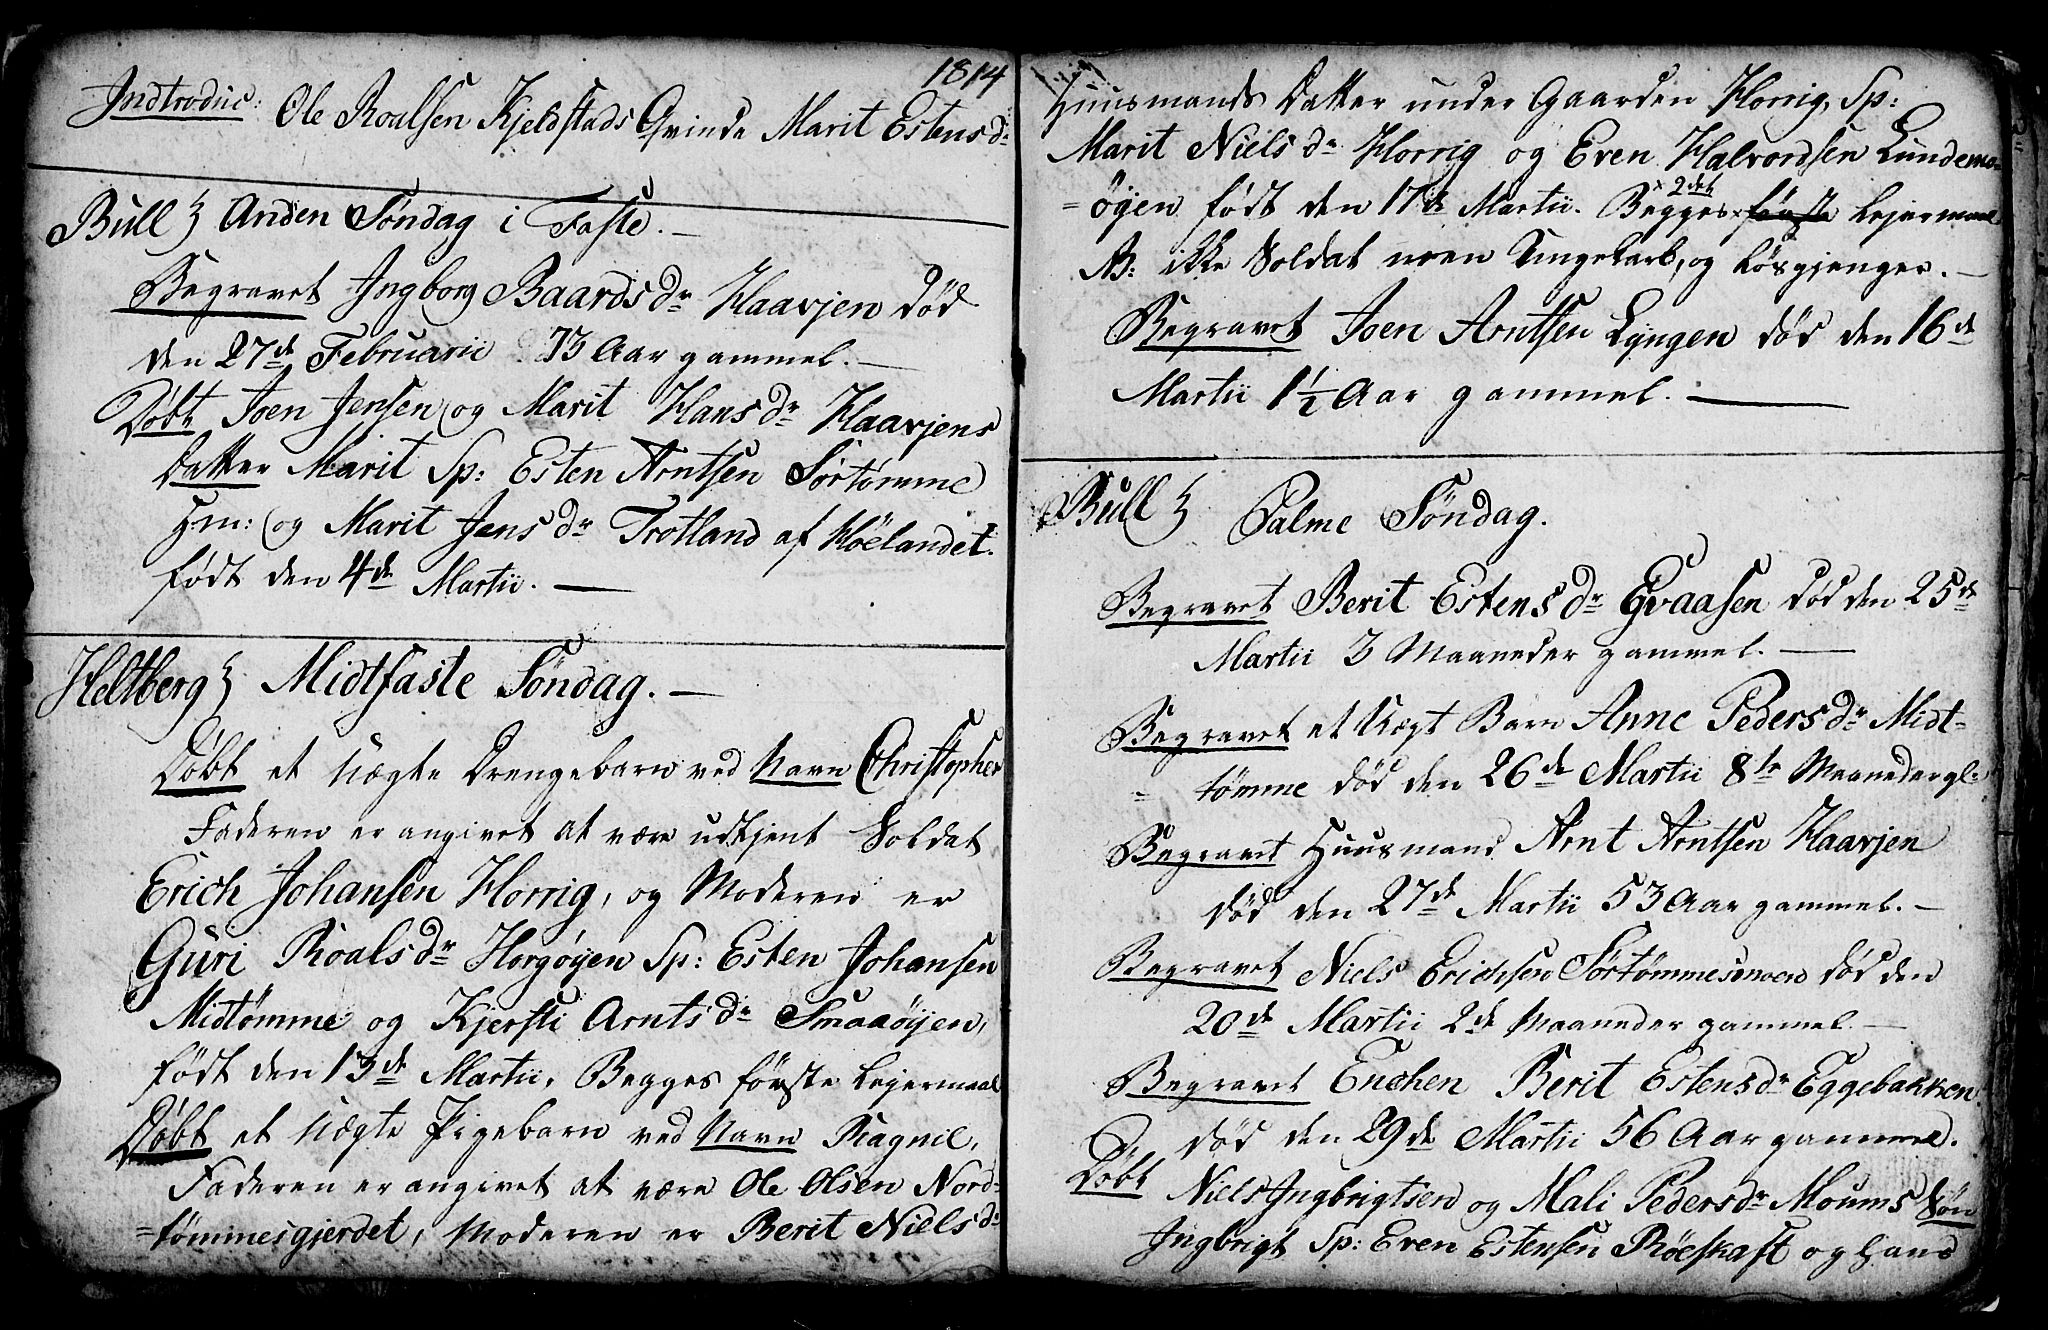 1814
Indtroduc: Ole Roalsen Kjeldstads Qvinde Marit Estensdr
Bull ʒ Anden Søndag i Faste. —
Begravet Ingborg Baardsdr Haavjen død
den 27de Februarii 73 Aar gammel. —
Døbt Joen Jensen og Marit Hansdr Haavjens
Datter Marit Sp: Esten Arntsen Sørtømme
Hm: og Marit Jensdr Trotland af Høelandet.
født den 4de Martii. —
Heltberg ʒ Midtfaste Søndag. —
Døbt et Uægte Drengebarn ved Navn Christopher
Faderen er angivet at være udtjent Soldat
Erich Johansen Horrig, og Moderen er
Guri Roalsdr Horgøyen Sp: Esten Johansen
Midtømme og Kjersti Arntsdr Smaaøyen,
født den 13de Martii, Begges første Lejermaal
Døbt et Uægte Pigebarn ved Navn Ragnil,
Faderen er angivet at være Ole Olsen Nord-
=tømmesgjerdet, Moderen er Berit Nielsdr
Huusmands Datter under Gaarden Horrig, Sp:
Marit Nielsdr Horrig og Even Halvordsen Lundemo-
=øyen født den 17de Martii. Begges første 2det Lejermaal
NB: ikke Soldat men Ungekarl, og Løsgjenger. —
Begravet Joen Arntsen Lyngen død den 16de
Martii 1 1/2 Aar gammel. —
Bull ʒ Palme Søndag.
Begravet Berit Estensdr Qvaasen død den 25de
Martii 3 Maaneder gammel. —
Begravet et Uægt Barn Anne Pedersdr Midt-
= tømme død den 26de Martii 8te Maaneder gl:
Begravet Huusmand Arnt Arntsen Haavjen
død den 27de Martii 53 Aar gammel. —
Begravet Niels Erichsen død den
20de Martii 2de Maaneder gammel —
Begravet Enchen Berit Estensdr Eggebakken
død den 29de Martii 56 Aar gammel.
Døbt Niels Ingbrigtsen og Mali Pedersdr Moums Søn
Ingbrigt Sp: Even Estensen Røeskaft og Hans